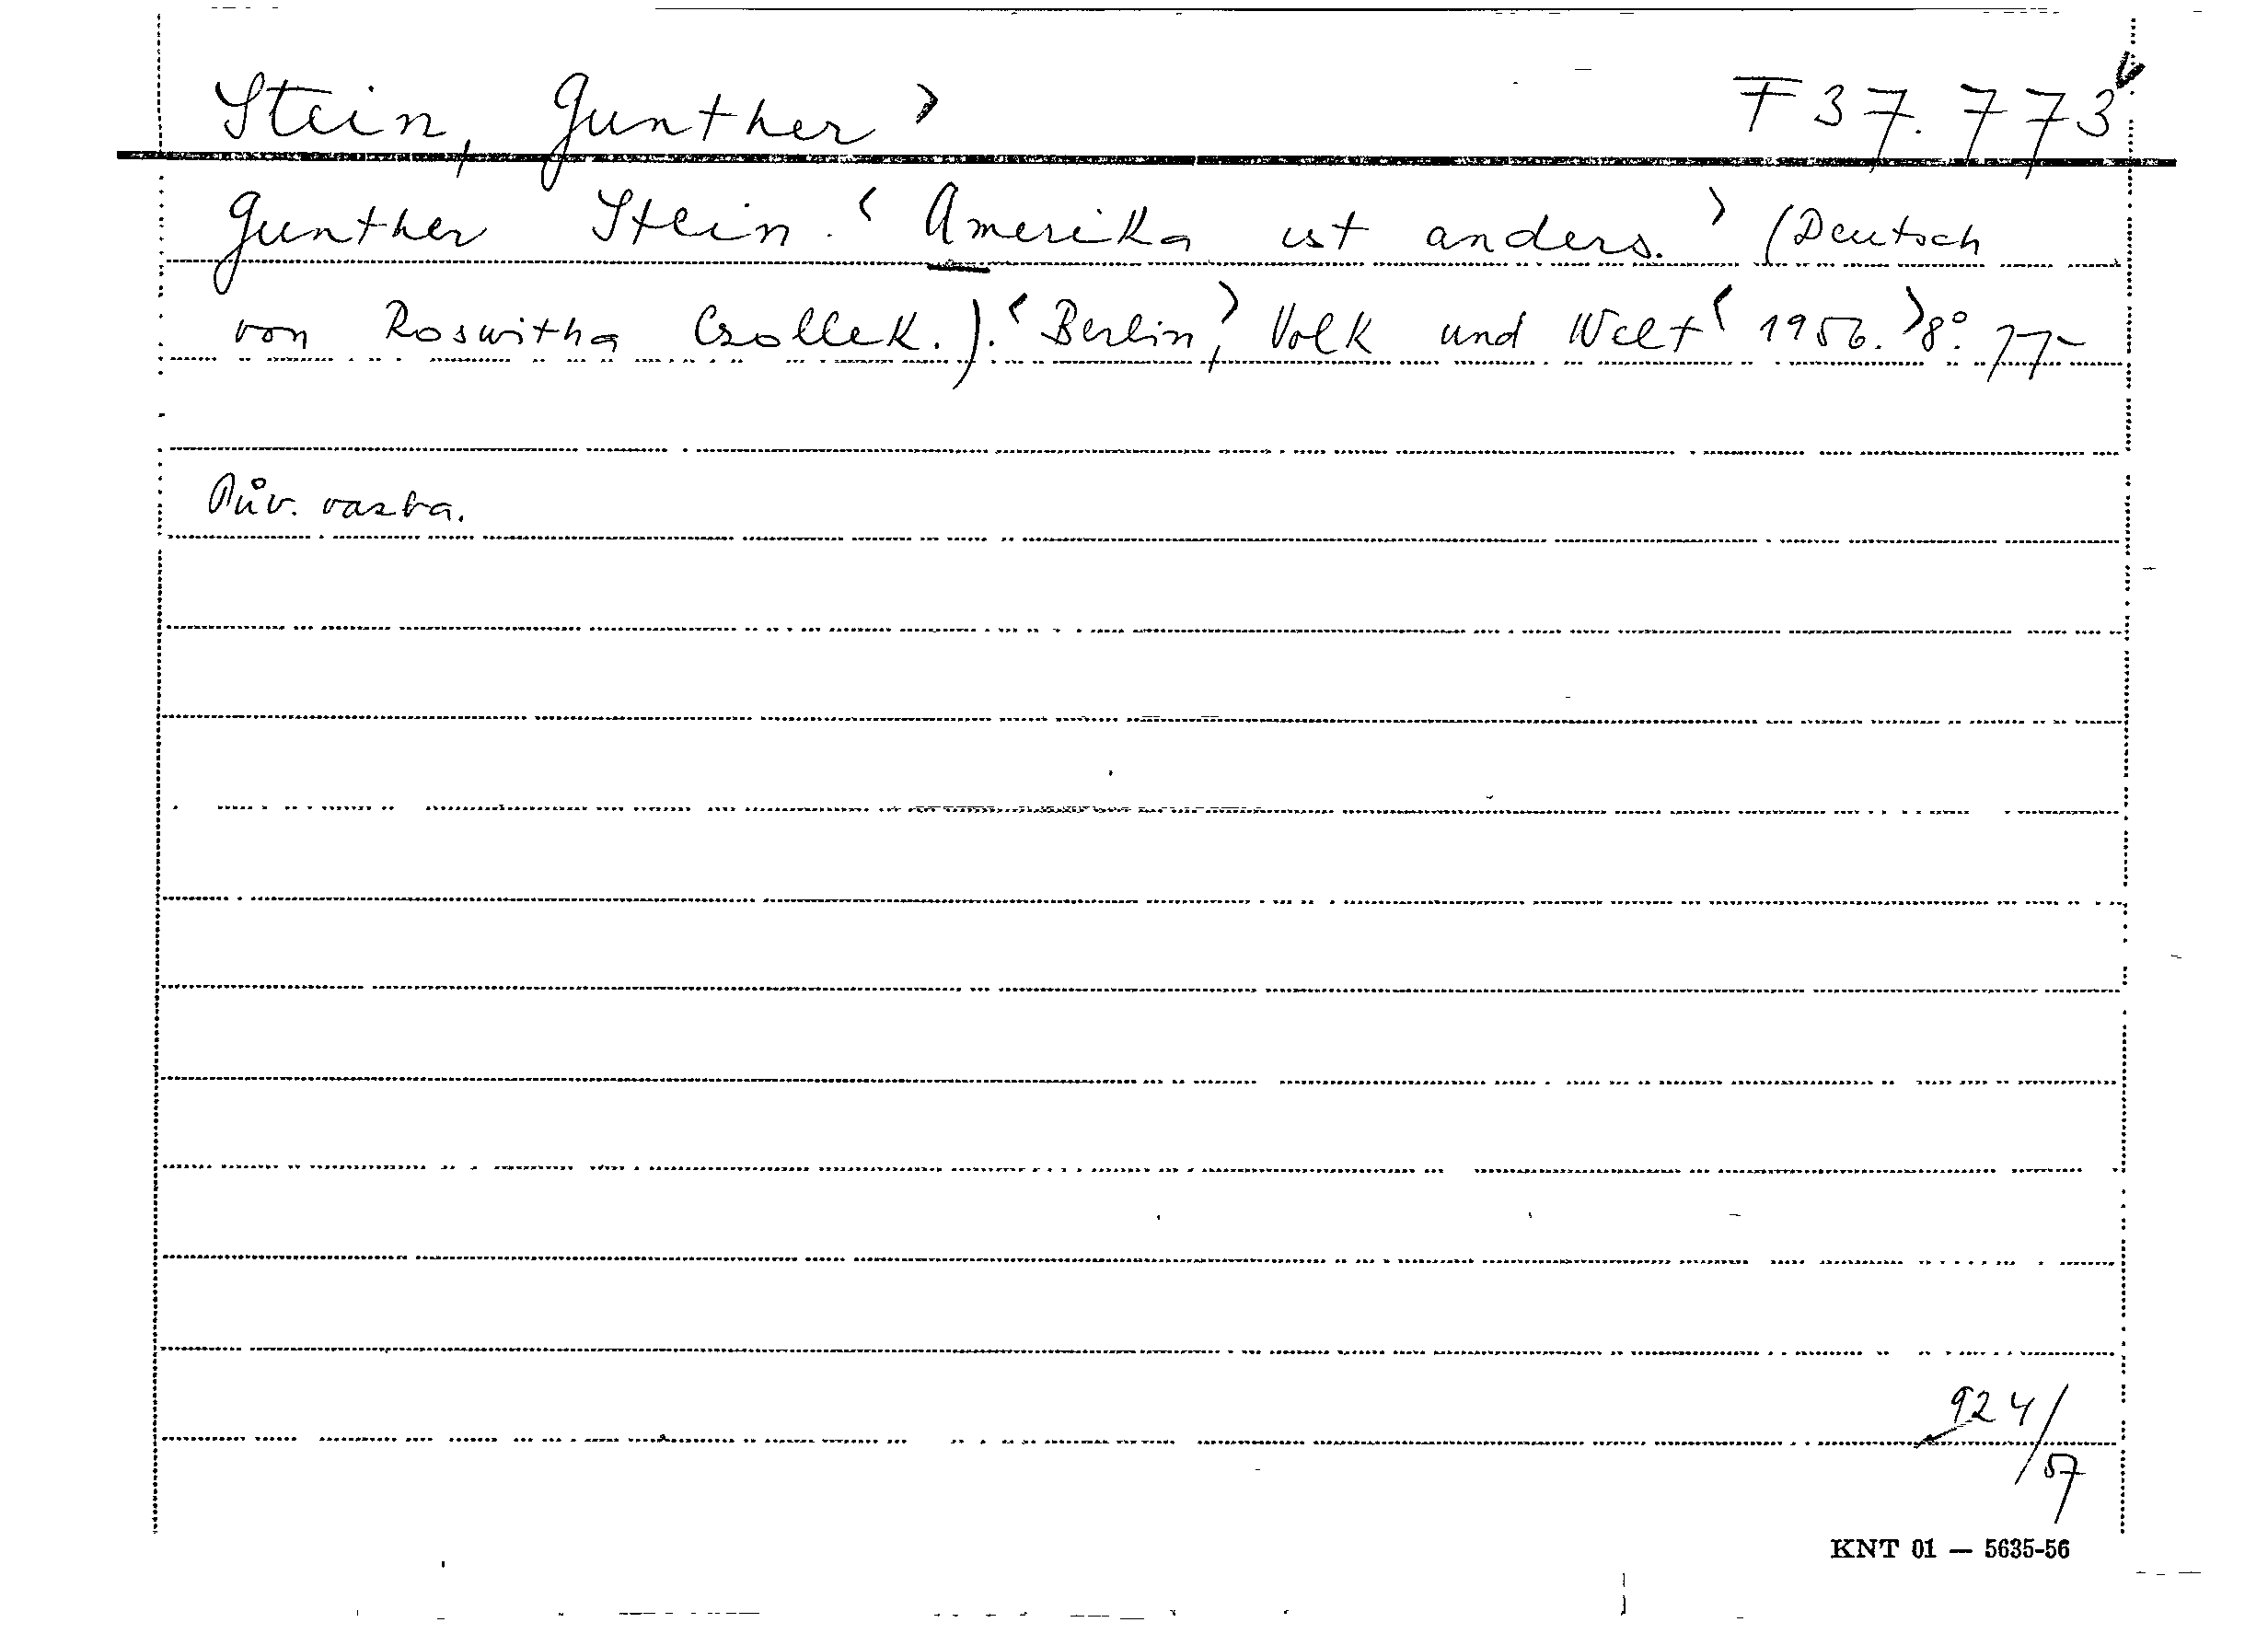 Stein, Gunther > F 37.773
Gunther Stein. < Amerika ist anders. > (Deutsch
von Roswitha Czollek.). < Berlin, > Volk und Welt < 1956. > 8°.
Pův. vazba.
924/57
KNT 01 — 5635-56